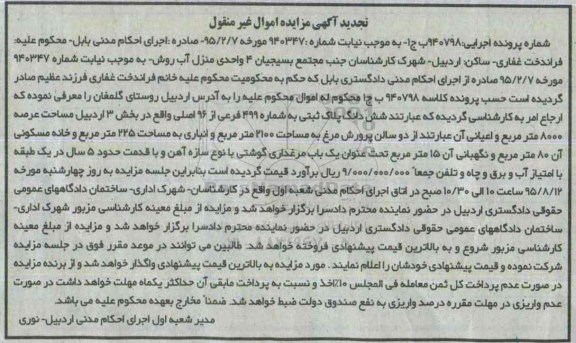 تجدید آگهی مزایده اموال غیر منقول
شماره پرونده اجرایی:۹۴۰۷۹۸ب ج۱- به موجب نیابت شماره:۹۴۰۳۴۷ مورخه ۹۵/۲/۷- صادره :اجرای احکام مدنی بابل- محکوم علیه:
فراندخت غفاری- ساکن: اردبیل- شهرک کارشناسان جنب مجتمع بسیجیان ۴ واحدی منزل آب روش- به موجب نیابت شماره ۹۴۰۳۴۷
مورخه ۹۵/۲/۷ صادره از اجرای احکام مدنی دادگستری بابل که حکم به محکومیت محکوم علیه خانم فراندخت غفاری فرزند عظیم صادر
گردیده است حسب پرونده کلاسه ۹۴۰۷۹۸ ب ج۱ محکوم له اموال محکوم علیه را به آدرس اردبیل روستای گلمغان را معرفی نموده که
ارجاع امر به کارشناسی گردیده که عبارتند شش دانگ پلاک ثبتی به شماره ۴۹۹ فرعی از ۹۶ اصلی واقع در بخش ۳ اردبیل مساحت عرصه
۸۰۰۰ متر مربع و اعیانی آن عبارتند از دو سالن پرورش مرغ به مساحت ۲۱۰۰ متر مربع و انباری به مساحت ۲۲۵ متر مربع و خانه مسکونی
آن ۸۰ متر مربع و نگهبانی آن ۱۵ متر مربع تحت عنوان یک باب مرغداری گوشتی با نوع سازه آهن و با قدمت حدود ۵ سال در یک طبقه
با امتیاز آب و برق و چاه و تلفن جمعاً ۹/۰۰۰/۰۰۰/۰۰۰ ریال برآورد قیمت گردیده است بنابراین جلسه مزایده به روز چهارشنبه مورخه
۹۵/۸/۱۲ ساعت ۱۰ الی ۱۰/۳۰ صبح در اتاق اجرای احکام مدنی شعبه اول واقع در کارشناسان- شهرک اداری- ساختمان دادگاههای عمومی
حقوقی دادگستری اردبیل در حضور نماینده محترم دادسرا برگزار خواهد شد و مزایده از مبلغ معینه کارشناسی مزبور شهرک اداری-
ساختمان دادگاههای عمومی حقوقی دادگستری اردبیل در حضور نماینده محترم دادسرا برگزار خواهد شد و مزایده از مبلغ معینه
کارشناسی مزبور شروع و به بالاترین قیمت پیشنهادی فروخته خواهد شد. طالبین می توانند در موعد مقرر فوق در جلسه مزایده
شرکت نموده و قیمت پیشنهادی خودشان را اعلام نمایند . مورد مزایده به بالاترین قیمت پیشنهادی واگذار خواهد شد و از برنده مزایده
در صورت عدم پرداخت کل ثمن معامله فی المجلس ۱۰٪اخذ و نسبت به پرداخت مابقی آن حداکثر یکماه مهلت خواهد داشت در صورت
عدم واریزی در مهلت مقرره درصد واریزی به نفع صندوق دولت ضبط خواهد شد. ضمناً مخارج بعهده محکوم علیه می باشد.
مدیر شعبه اول اجرای احکام مدنی اردبیل- نوری